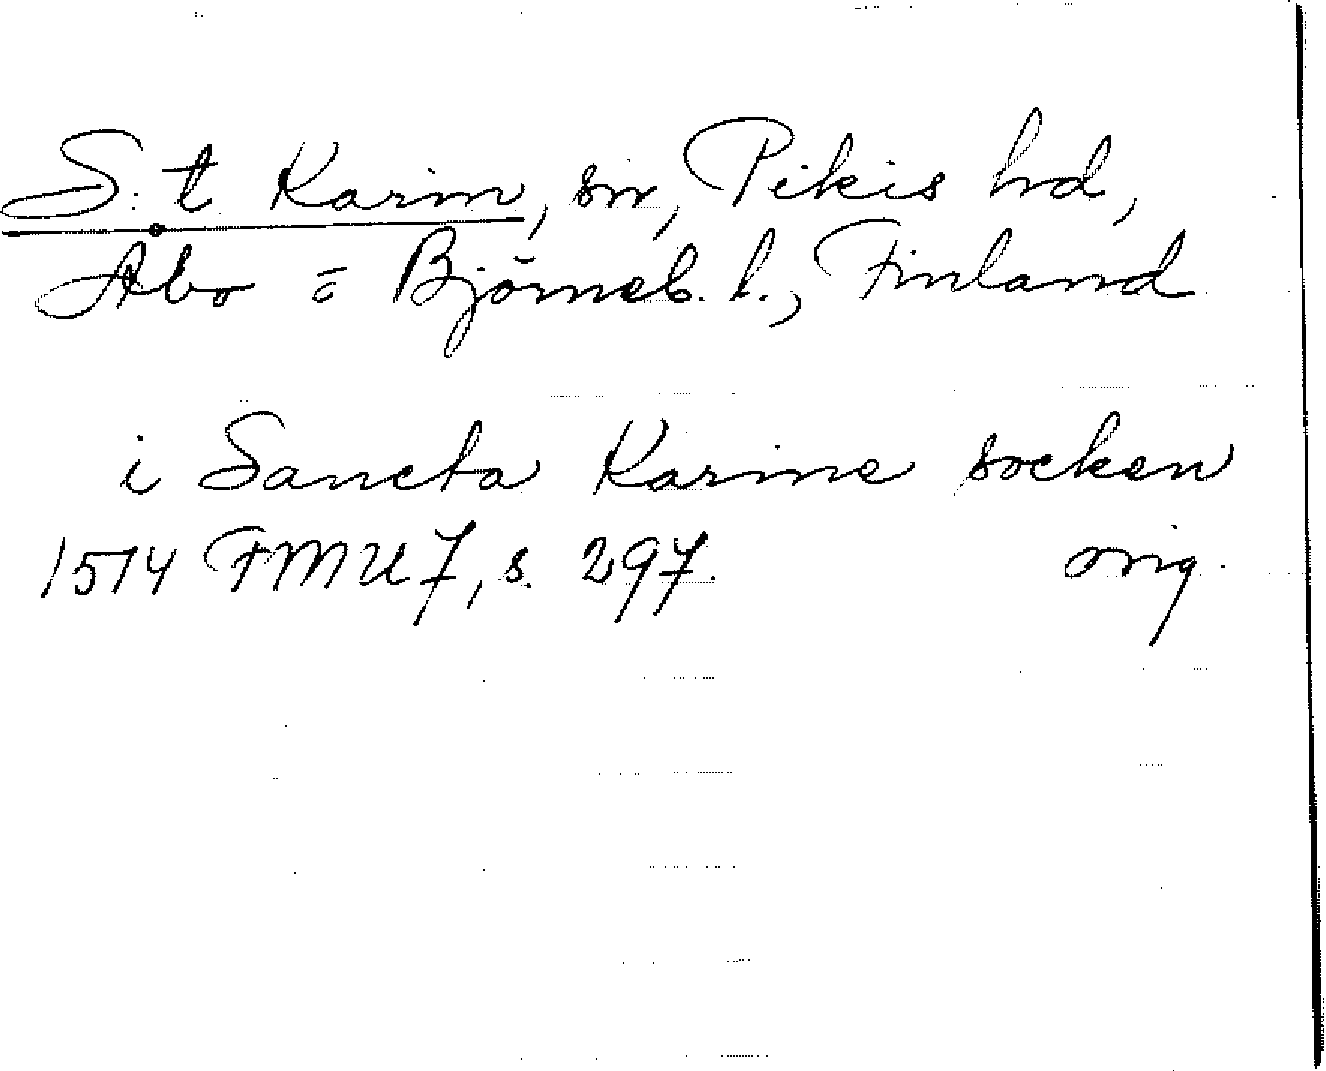 S:t Karin, sn, Pikis hd,
Åbo o Björneb. l., Finland
i Sancta Karine socken
1514 FMU 7, s. 297. orig.